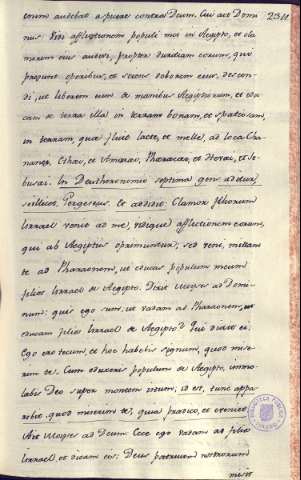 enim audebat aspicere contra Deum. Cui ait Domi 2311
nus Vidi afflictionem populi mei in Aegypto, et cla
morem eius audivi, propter duritiam eorum, qui
præsunt operibus, et sciens dolorem eius, descen
di, ut liberem eum de manibus Aegyptiorum, et edu
cam de terra illa in terram bonam, et spatiosam,
in terram, quæ fluit lacte, et melle, ad loca Cha
nanæi, Ethæi, et Amorræi, Pharæzæi, et Hevæi, et Ie
busæi. In Deuthoronomio septima gens additur,
scilicet, Pergeseus. Ex addito. Clamor filiorum
Isrrael venit ad me, vidique afflictionem eorum,
qui ab Aegiptiis oprimuntur, sed veni, mittam
te ad Pharaonem, ut educas populum meum
filios Isrrael de Aegipto. Dixit Moyses ad Domi
num: quis ego sum, ut vadam ad Pharaonem, et
educam filios Isrrael de Aegipto? Qui dixit ei:
Ego ero tecum, et hoc habebis signum, quod mise
rim te. Cum eduxeris populum de Aegipto, immo
labis Deo super montem istum, id est, tunc appa
rebit, quod miserim te,
Ait Moyses ad Deum: Ecce ego vadam ad filios
Isrrael, et dicam eis: Deus patrum vestrorum
misit